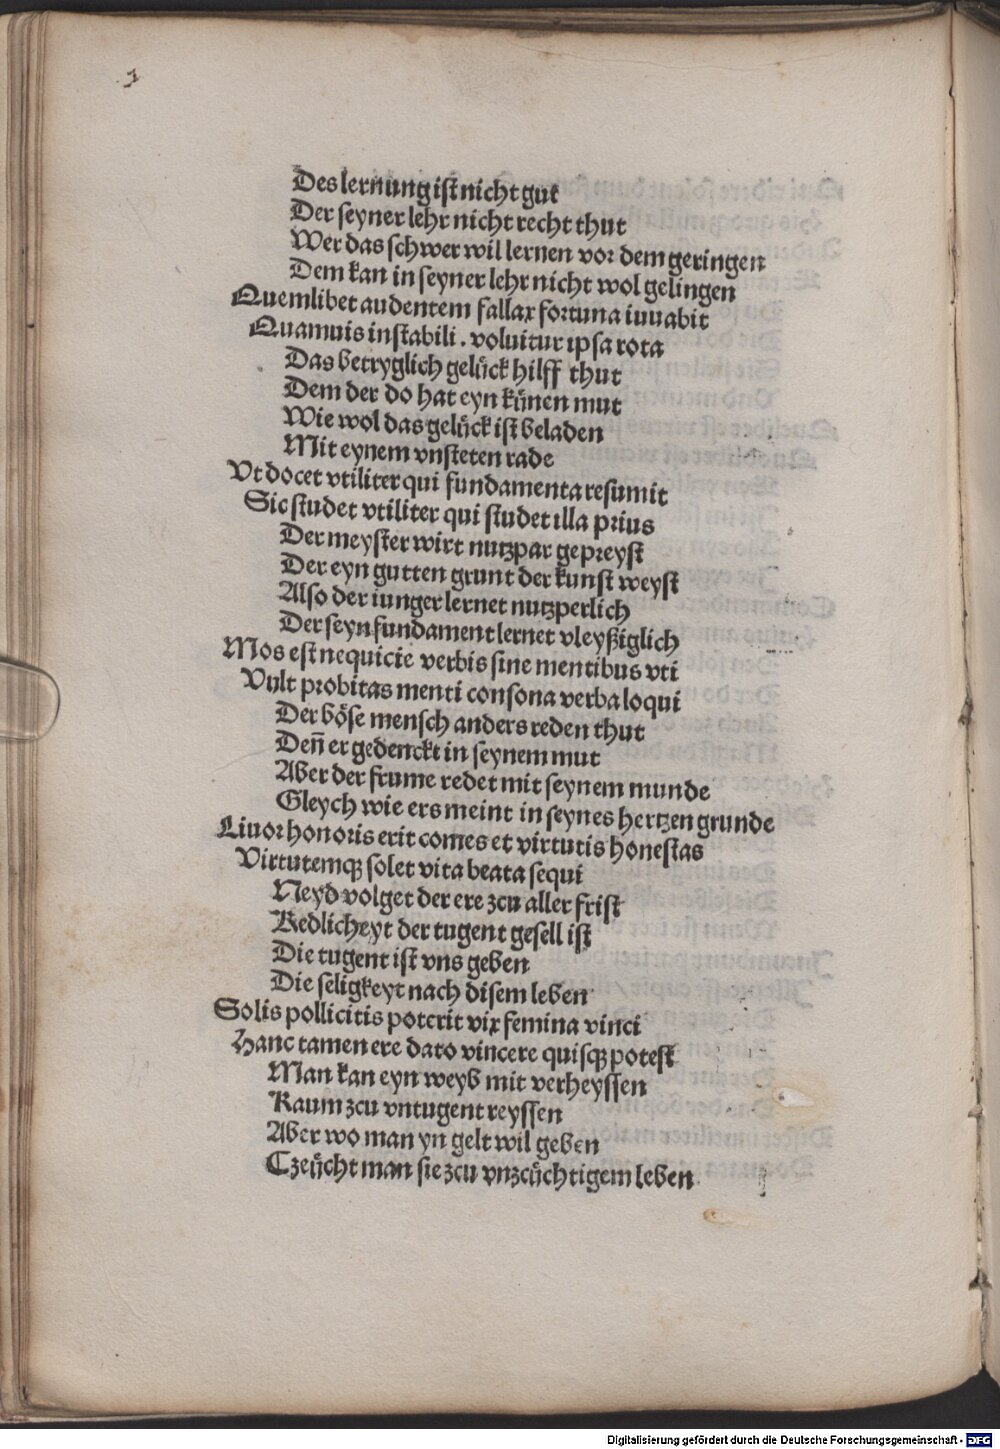 Des lernung ist nicht gut
Der seyner lehr nicht recht thut
Wer das schwer wil lernen vor dem geringen
Dem kan in seyner lehr nicht wol gelingen
Quemlibet audentem fallax fortuna iuuabit
Quamuis instabili . voluitur ipsa rota
Das betryglich gelück hilff thut
Dem der do hat eyn künen mut
Wie wol das gelück ist beladen
Mit eynem vnsteten rade
Vt docet vtiliter qui fundamenta resumit
Sic studet vtiliter qui studet illa prius
Der meyster wirt nutzpar gepreyst
Der eyn gutten grunt der kunst weyst
Also der iunger lernet nutzperlich
Der seyn fundament lernet vleyßiglich
Mos est nequicie verbis sine mentibus vti
Vult probitas menti consona verba loqui
Der böse mensch anders reden thut
Den̄ er gedenckt in seynem mut
Aber der frume redet mit seynem munde
Gleych wie ers meint in seynes hertzen grunde
Liuor honoris erit comes et virtutis honestas
Virtutemqꝫ solet vita beata sequi
Neyd volget der ere zcu aller frist
Redlicheyt der tugent gesell ist
Die tugent ist vns geben
Die seligkeyt nach disem leben
Solis pollicitis poterit vix femina vinci
Hanc tamen ere dato vincere quisqꝫ potest
Man kan eyn weyb mit verheyssen
Kaum zcu vntugent reyssen
Aber wo man yn gelt wil geben
Czeücht man sie zcu vnzcüchtigem leben
Digitalisierung gefördert durch die Deutsche Forschungsgemeinschaft - DFG